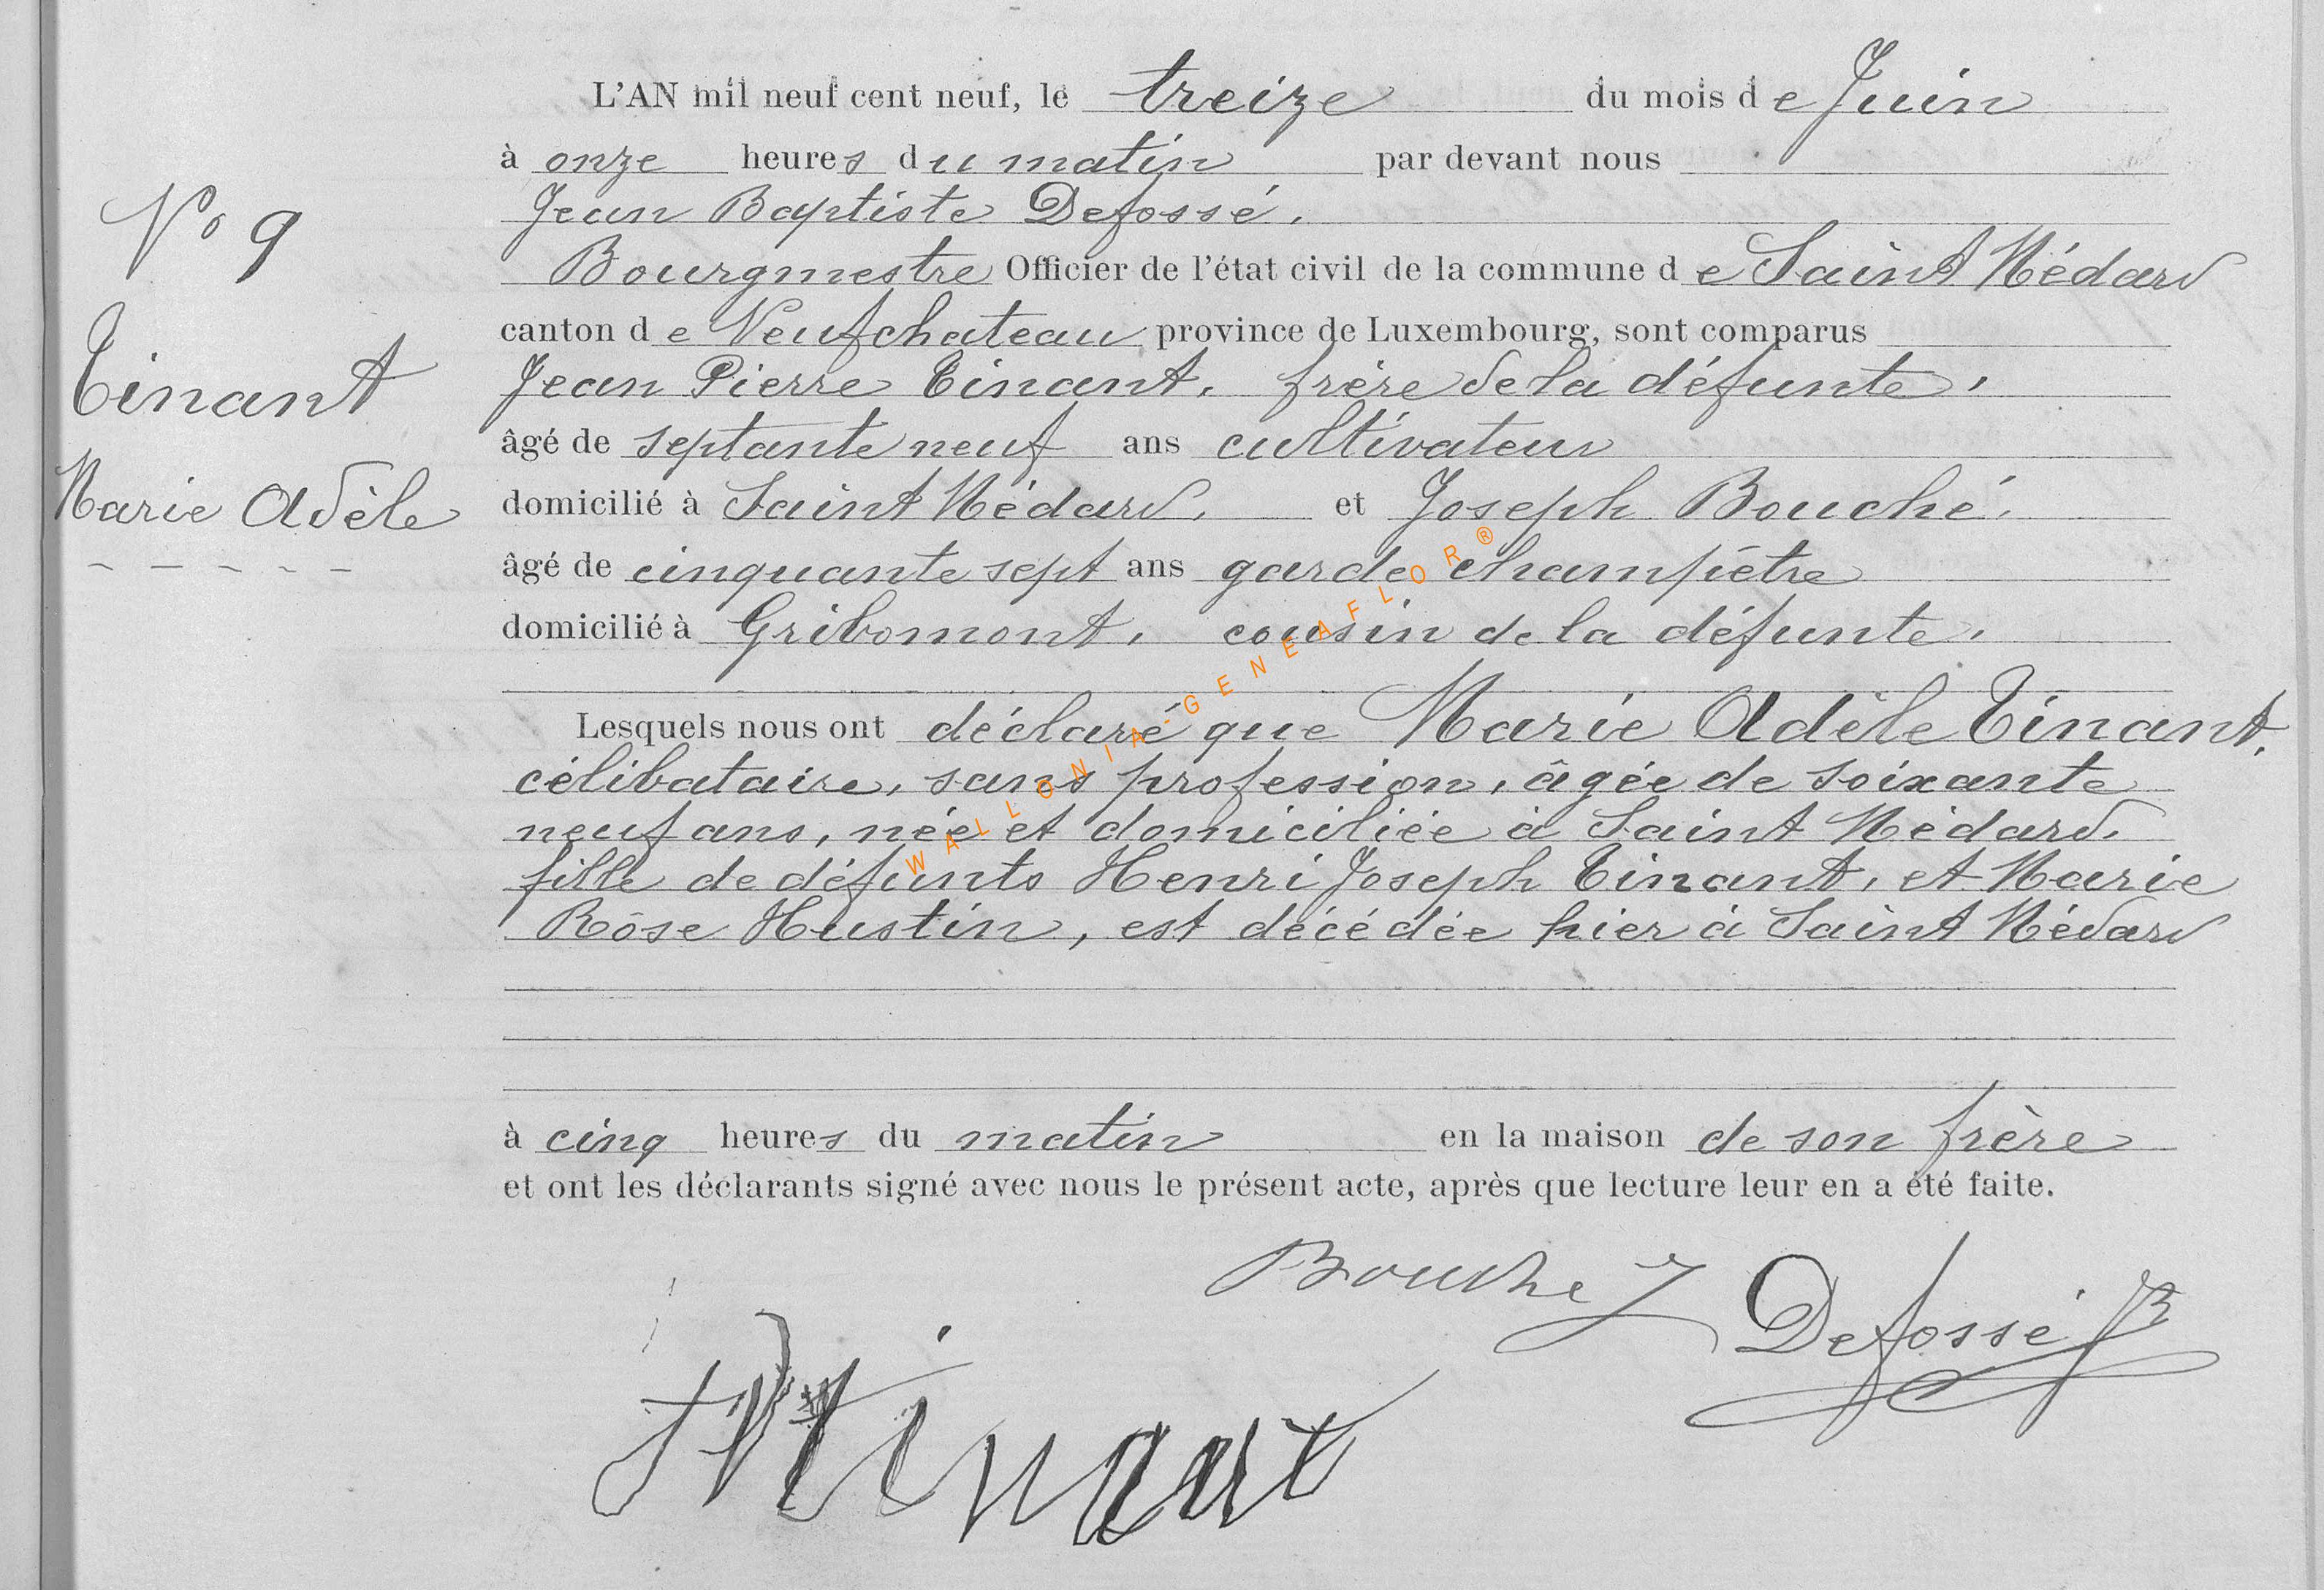 N° 9
Tinant
Marie Adèle
L'AN mil neuf cent neuf, le treize du mois de Juin
à onze heures du matin par devant nous
Jean Baptiste Defossé,
Bourgmestre Officier de l'état civil de la commune de Saint Médard
canton de Neufchateau province de Luxembourg, sont comparus
Jean Pierre Tinant, frère de la défunte,
âgé de septante neuf ans cultivateur
domicilié à Saint Médard, et Joseph Bouché,
âgé de cinquante sept ans garde champêtre
domicilié à Gribomont, cousin de la défunte,
Lesquels nous ont déclaré que Marie Adèle Tinant,
célibataire, sans profession, âgée de soixante
neuf ans, née et domiciliée à Saint Médard,
fille de défunts Henri Joseph Tinant, et Marie
Rose Hustin, est décédée hier à Saint Médard
à cinq heures du matin en la maison de son frère
et ont les déclarants signé avec nous le présent acte, après que lecture leur en a été faite.
Bouché J
Defossé JB
JPTinant
WALLONIA-GENEAFLOR®